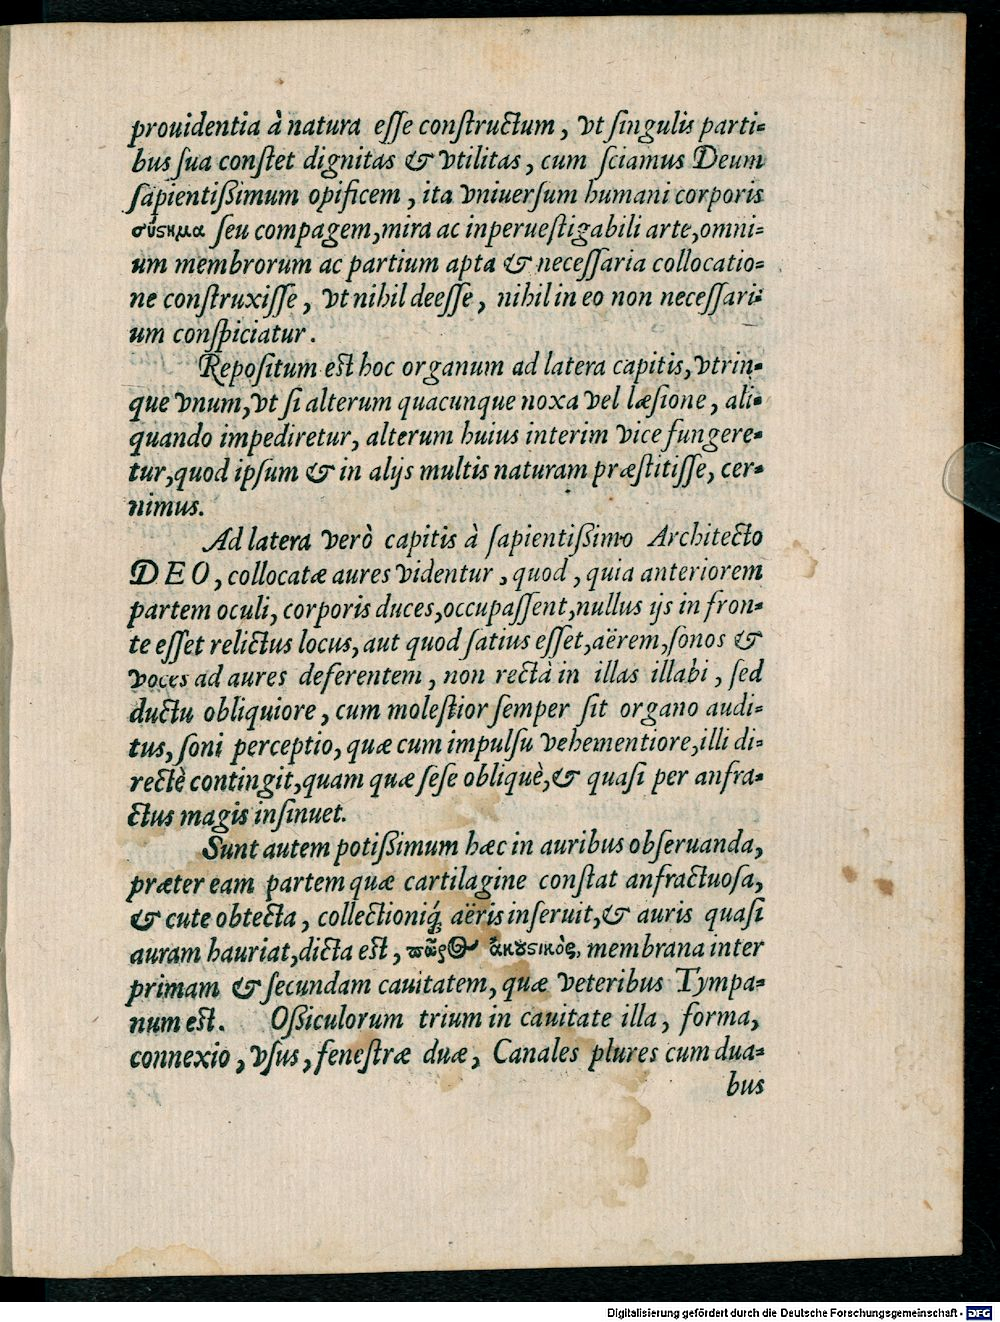 prouidentia à natura esse constructum, vt singulis parti-
bus sua constet dignitas & vtilitas, cum sciamus Deum
sapientißimum opificem, ita vniuersum humani corporis
σύςημα seu compagem, mira ac inperuestigabili arte, omni-
um membrorum ac partium apta & necessaria collocatio-
ne construxisse, vt nihil deesse, nihil in eo non necessari-
um conspiciatur.
Repositum est hoc organum ad latera capitis, vtrin-
que vnum, vt si alterum quacunque noxa vel læsione, ali-
quando impediretur, alterum huius interim vice fungere-
tur, quod ipsum & in alijs multis naturam præstitisse, cer-
nimus.
Ad latera verò capitis à sapientißimo Architecto
DEO, collocatæ aures videntur, quod, quia anteriorem
partem oculi, corporis duces, occupassent, nullus ijs in fron-
te esset relictus locus, aut quod satius esset, aërem, sonos &
voces ad aures deferentem, non rectà in illas illabi, sed
ductu obliquiore, cum molestior semper sit organo audi-
tus, soni perceptio, quæ cum impulsu vehementiore, illi di-
rectè contingit, quam quæ sese obliquè, & quasi per anfra-
ctus magis insinuet.
Sunt autem potißimum hæc in auribus obseruanda,
præter eam partem quæ cartilagine constat anfractuosa,
& cute obtecta, collectioniq́ aëris inseruit, & auris quasi
auram hauriat, dicta est, ἀκουςικὸς, membrana inter
primam & secundam cauitatem, quæ veteribus Tympa-
num est. Oßiculorum trium in cauitate illa, forma,
connexio, vsus, fenestræ duæ, Canales plures cum dua-
bus
Digitalisierung gefördert durch die Deutsche Forschungsgemeinschaft - DFG